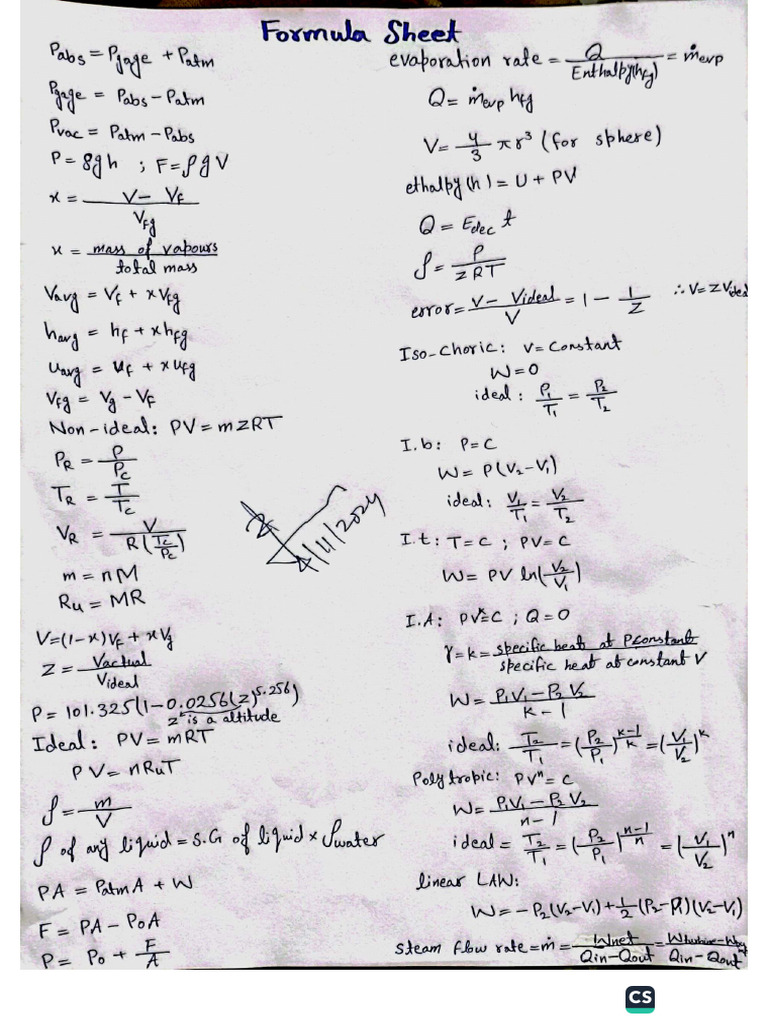 Formula Sheet
Pabs = Pgage + Patm
Pgage = Pabs - Patm
Pvac = Patm - Pabs
P = ρgh ; F = ρgV
x = (V - Vf) / Vfg
x = mass of vapours / total mass
Vavg = Vf + xVfg
havg = hf + xhfg
uavg = uf + xufg
Vfg = Vg - Vf
Non-ideal: PV = mZRT
PR = P / Pc
TR = T / Tc
VR = V / R(Tc/Pc)
m = nM
Ru = MR
V = (1-x)Vf + xVg
Z = Vactual / Videal
P = 101.325(1-0.0256(z)^5.256)
z is a altitude
Ideal: PV = mRT
PV = nRuT
ρ = m / V
ρ of any liquid = S.G of liquid × ρwater
PA = PatmA + W
F = PA - PoA
P = Po + F/A
evaporation rate = Q / Enthalpy(hfg) = ṁevp
Q = ṁevp hfg
V = 4/3 πr³ (for sphere)
ethalpy(h) = U + PV
Q = Eelec t
ρ = P / ZRT
error = (V - Videal) / V = 1 - 1/Z ∴ V = ZVideal
Iso-Choric: V = Constant
W = 0
ideal: P1/T1 = P2/T2
I.b: P = C
W = P(V2-V1)
ideal: V1/T1 = V2/T2
I.t: T = C ; PV = C
W = PV ln(V2/V1)
I.A: PV^k = C ; Q = 0
γ = k = specific heat at P constant / specific heat at constant V
W = (P1V1 - P2V2) / (k-1)
ideal: T2/T1 = (P2/P1)^((k-1)/k) = (V1/V2)^k
Polytropic: PV^n = C
W = (P1V1 - P2V2) / (n-1)
ideal = T2/T1 = (P2/P1)^((n-1)/n) = (V1/V2)^n
linear LAW:
W = -P2(V2-V1) + 1/2 (P2-P1)(V2-V1)
steam flow rate = ṁ = Wnet / (Qin-Qout) = (Wturbine - W) / (Qin-Qout)
4/11/2024
CS